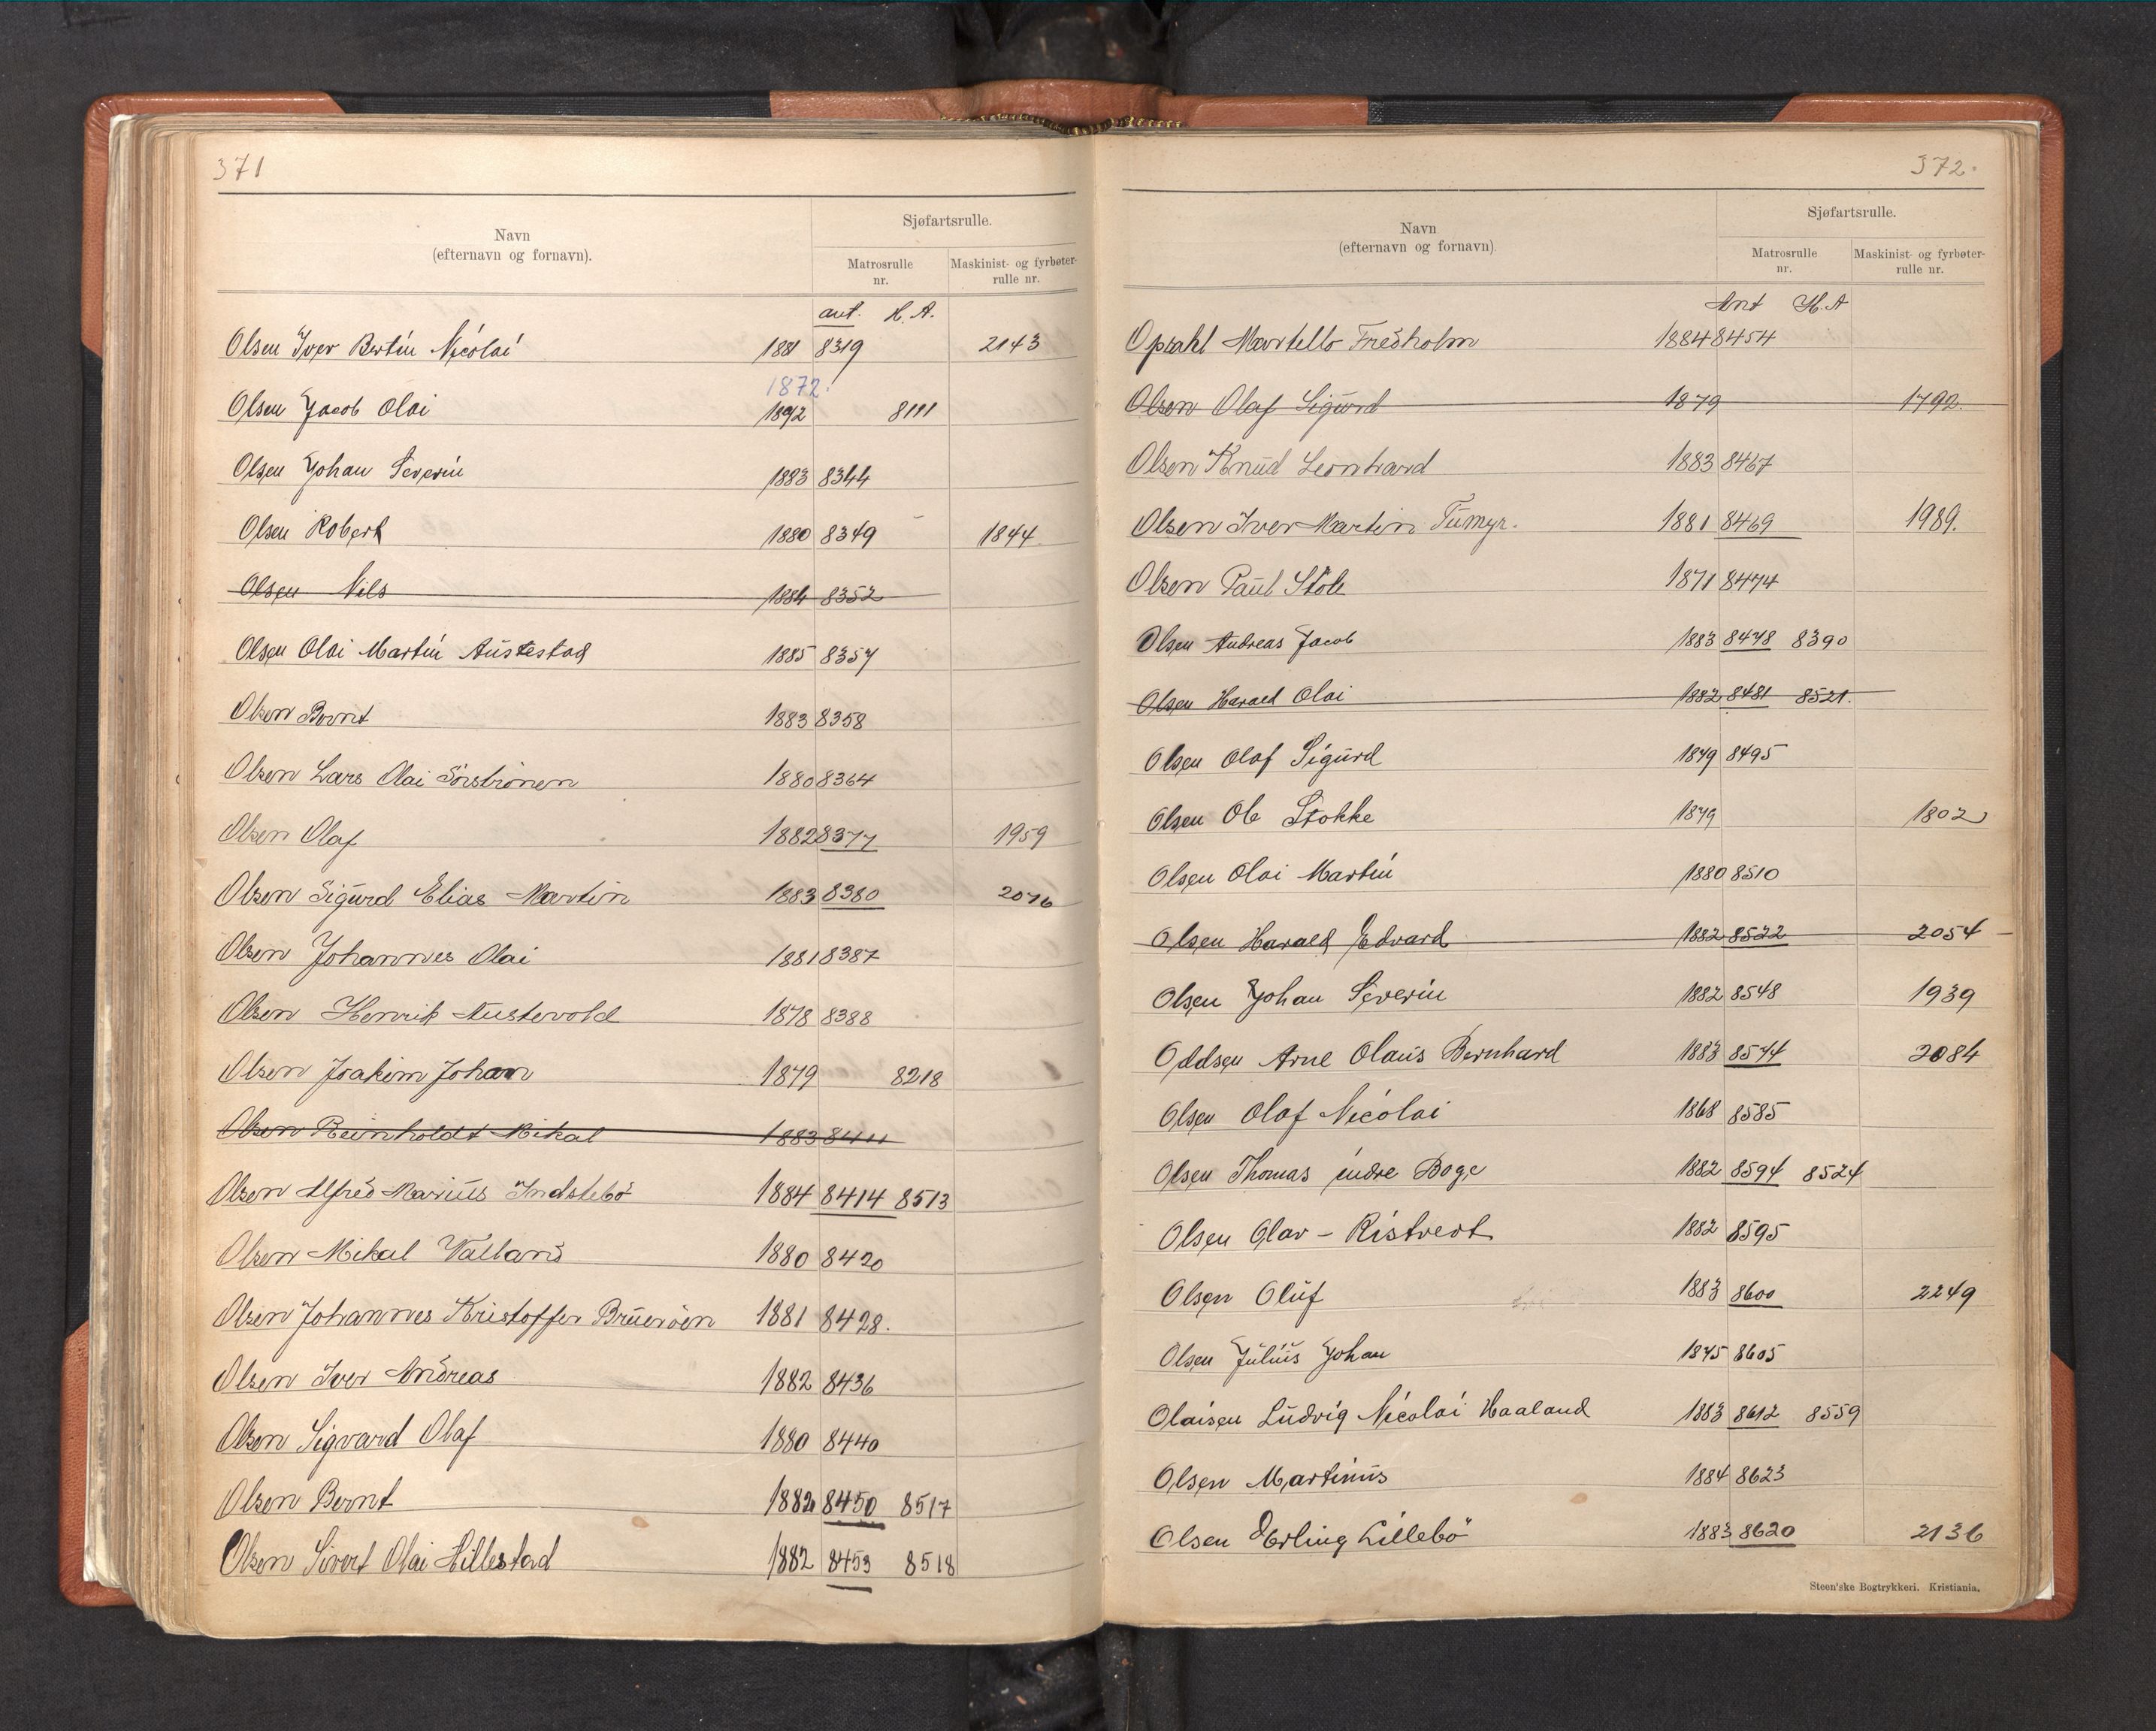 371
Navn
(efternavn og fornavn).
Sjøfartsrulle.
Matrosrulle
nr.
Maskinist- og fyrbøter-
rulle nr.
ant. H. A.
Olsen Iver Bertin Nicolai 1881 8319 2143
1872.
Olsen Jacob Olai 1892 8111
Olsen Johan Severin 1883 8344
Olsen Robert 1880 8349 1844
Olsen Nils 1884 8352
Olsen Olai Martin Austestad 1885 8357
Olsen Bernt 1883 8358
Olsen Lars Olai 1880 8364
Olsen Olaf 1882 8377 1959
Olsen Sigurd Elias Martin 1883 8380 2076
Olsen Johannes Olai 1881 8387
Olsen Henrik Austevold 1878 8388
Olsen Joakim Johan 1879 8218
Olsen Reinholdt Mikal 1883 8411
Olsen Alfred Marius Indstebø 1884 8414 8513
Olsen Mikal Valland 1880 8420
Olsen Johannes Kristoffer Bruerøen 1881 8428.
Olsen Iver Andreas 1882 8436
Olsen Sigvard Olaf 1880 8440
Olsen Bernt 1882 8450 8517
Olsen Sivert Olai Hillestad 1882 8453 8518
372.
Navn
(efternavn og fornavn).
Sjøfartsrulle.
Matrosrulle
nr.
Maskinist- og fyrbøter-
rulle nr.
Ant H. A
Opsahl Martello Fredholm 1884 8454
Olsen Olaf Sigurd 1879 1792.
Olsen Knud Leonhard 1883 8467
Olsen Iver Martin Tumyr. 1881 8469 1989.
Olsen Paul Støle 1871 8474
Olsen Andreas Jacob 1883 8478 8390
Olsen Harald Olai 1882 8481 8521.
Olsen Olaf Sigurd 1879 8495
Olsen Ole Stokke 1879 1802
Olsen Olai Martin 1880 8510
Olsen Harald Edvard 1882 8522 2054
Olsen Johan Severin 1882 8548 1939
Oddsen Arne Olaus Bernhard 1883 8574 2084
Olsen Olaf Nicolai 1868 8585
Olsen Thomas indre Boge 1882 8594 8524
Olsen Olav - Ristvedt 1882 8595
Olsen Oluf 1883 8600 2249
Olsen Julius Johan 1875 8605
Olaisen Ludvig Nicolai Haaland 1883 8612 8559
Olsen Martinus 1884 8623
Olsen Erling Lillebö 1883 8620 2136
Steen'ske Bogtrykkeri. Kristiania.